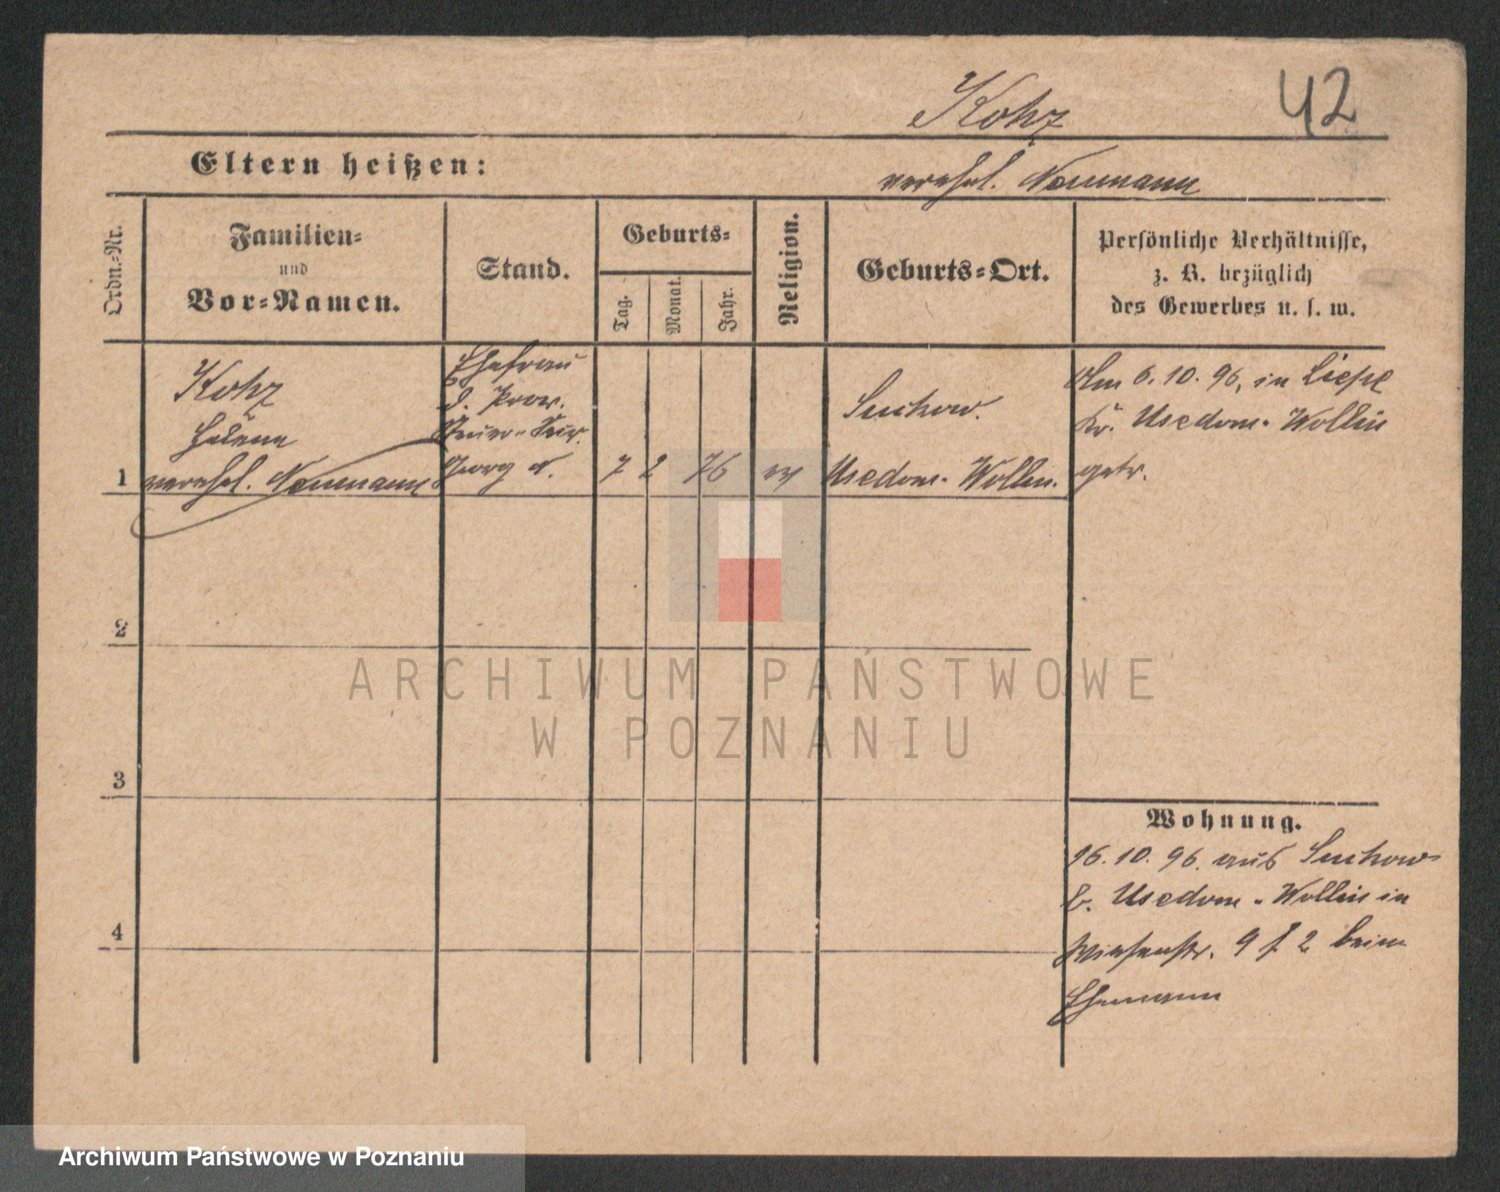 Kohz
42
Eltern heißen:
verehel. Naumann
Ordn.-Nr.
Familien-
und
Vor-Namen.
Stand.
Geburts-
Tag.
Monat.
Jahr.
Religion.
Geburts-Ort.
Persönliche Verhältnisse,
z. B. bezüglich
des Gewerbes u. s. w.
1
Kohz
Helene
verehel. Naumann
Ehefrau
d. Prov.
Steuer-Secr.
Georg N.
7 2 76
ev
Suckow.
Usedom-Wollin.
Am 6.10.96, in Liepe
Kr. Usedom-Wollin
getr.
2
3
4
Wohnung.
16.10.96. aus Suckow
b. Usedom-Wollin in
Wiesenstr. 9 I 2 beim
Ehemann
ARCHIWUM PAŃSTWOWE
W POZNANIU
Archiwum Państwowe w Poznaniu